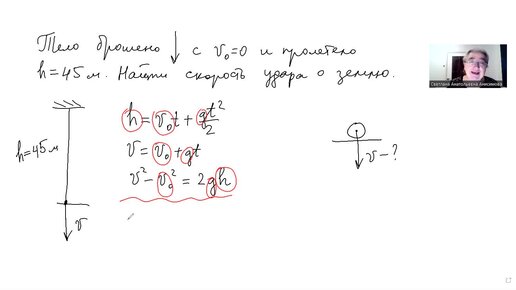 Тело брошено ↓ с v₀=0 и пролетело
h=45 м. Найти скорость удара о землю.
Светлана Анатольевна Анисимова
h=45м
v
h = v₀t + gt²/2
v = v₀ + gt
v² − v₀² = 2gh
v − ?